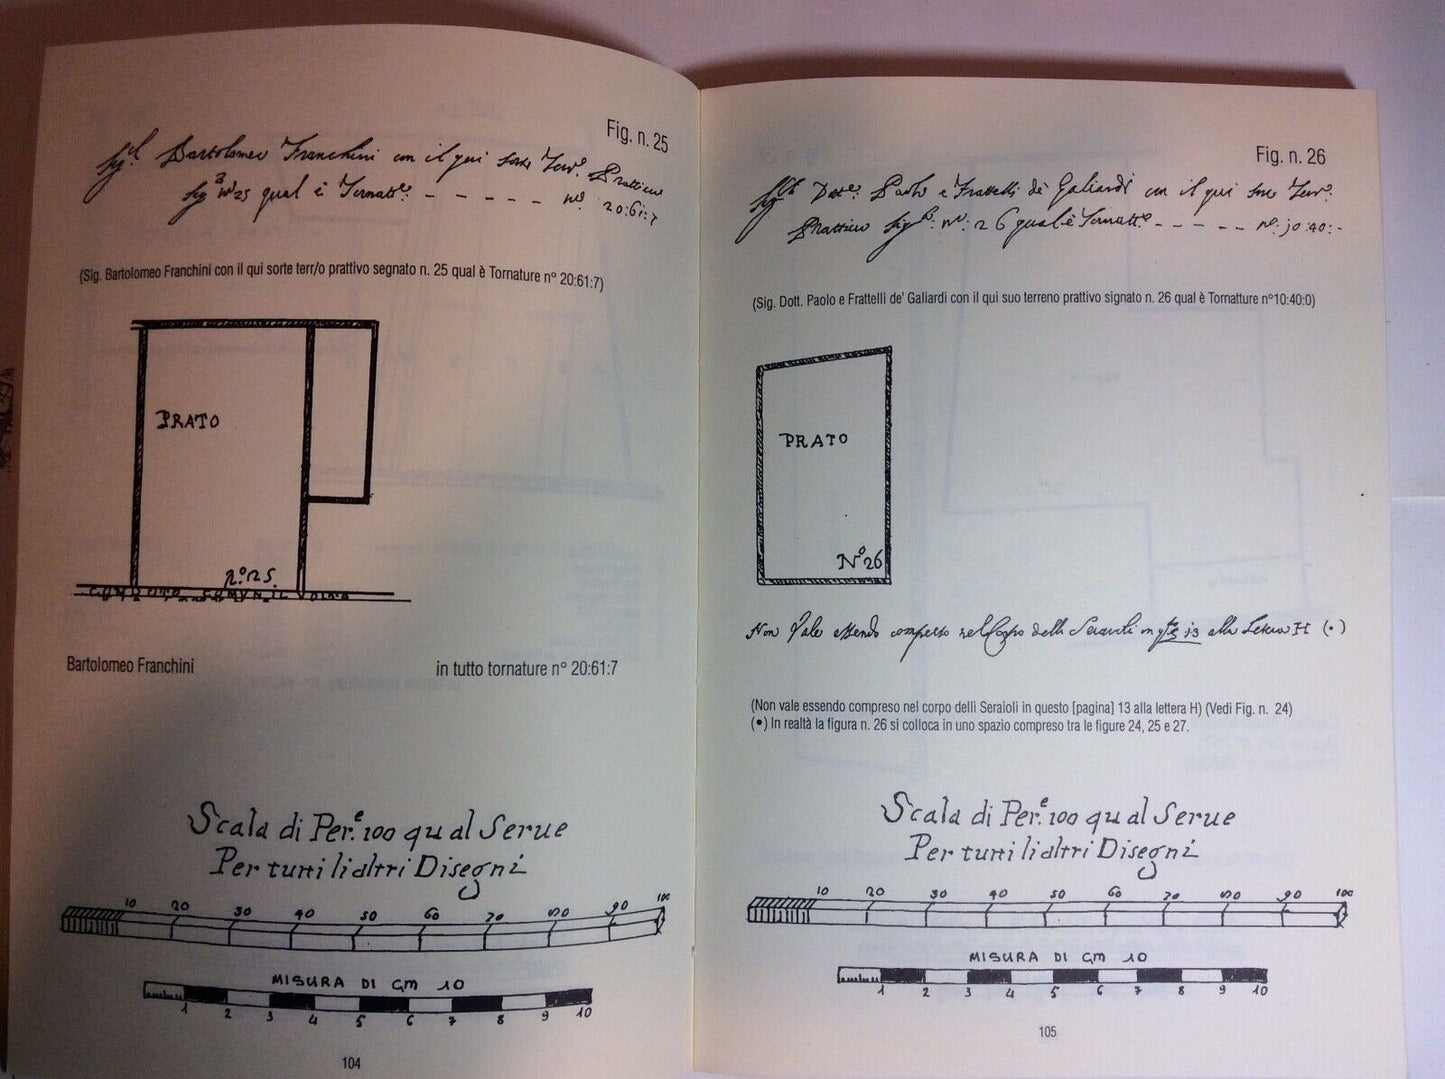 Fig. n. 25
Sig.r Bartolomeo Franchini con il qui sorte Terr.o Prattivo
Sig.to n.o 25 qual è Tornatt.e - - - - - - n.o 20:61:7
(Sig. Bartolomeo Franchini con il qui sorte terr/o prattivo segnato n. 25 qual è Tornature n° 20:61:7)
PRATO
N.o 25.
CONDOTO COMUN IL
Bartolomeo Franchini
in tutto tornature n° 20:61:7
Scala di Per.e 100 qu al Serue
Per tutti li altri Disegni
10 20 30 40 50 60 70 80 90 100
MISURA DI CM 10
1 2 3 4 5 6 7 8 9 10
104
Fig. n. 26
Dott.e Paolo e Frattelli de Galiardi con il qui suo Terr.o
Prattivo Sig.to: n.o: 26 qual è Tornatt.e - - - - - n.o: 10:40:-
(Sig. Dott. Paolo e Frattelli de' Galiardi con il qui suo terreno prattivo signato n. 26 qual è Tornatture n°10:40:0)
PRATO
N.o 26
Non Vale essendo compreso nel Corpo delli Seraioli in 13 alla Letera H (•)
(Non vale essendo compreso nel corpo delli Seraioli in questo [pagina] 13 alla lettera H) (Vedi Fig. n. 24)
(•) In realtà la figura n. 26 si colloca in uno spazio compreso tra le figure 24, 25 e 27.
Scala di Per.e 100 qu al Serue
Per tutti li altri Disegni
10 20 30 40 50 60 70 80 90 100
MISURA DI CM 10
1 2 3 4 5 6 7 8 9 10
105